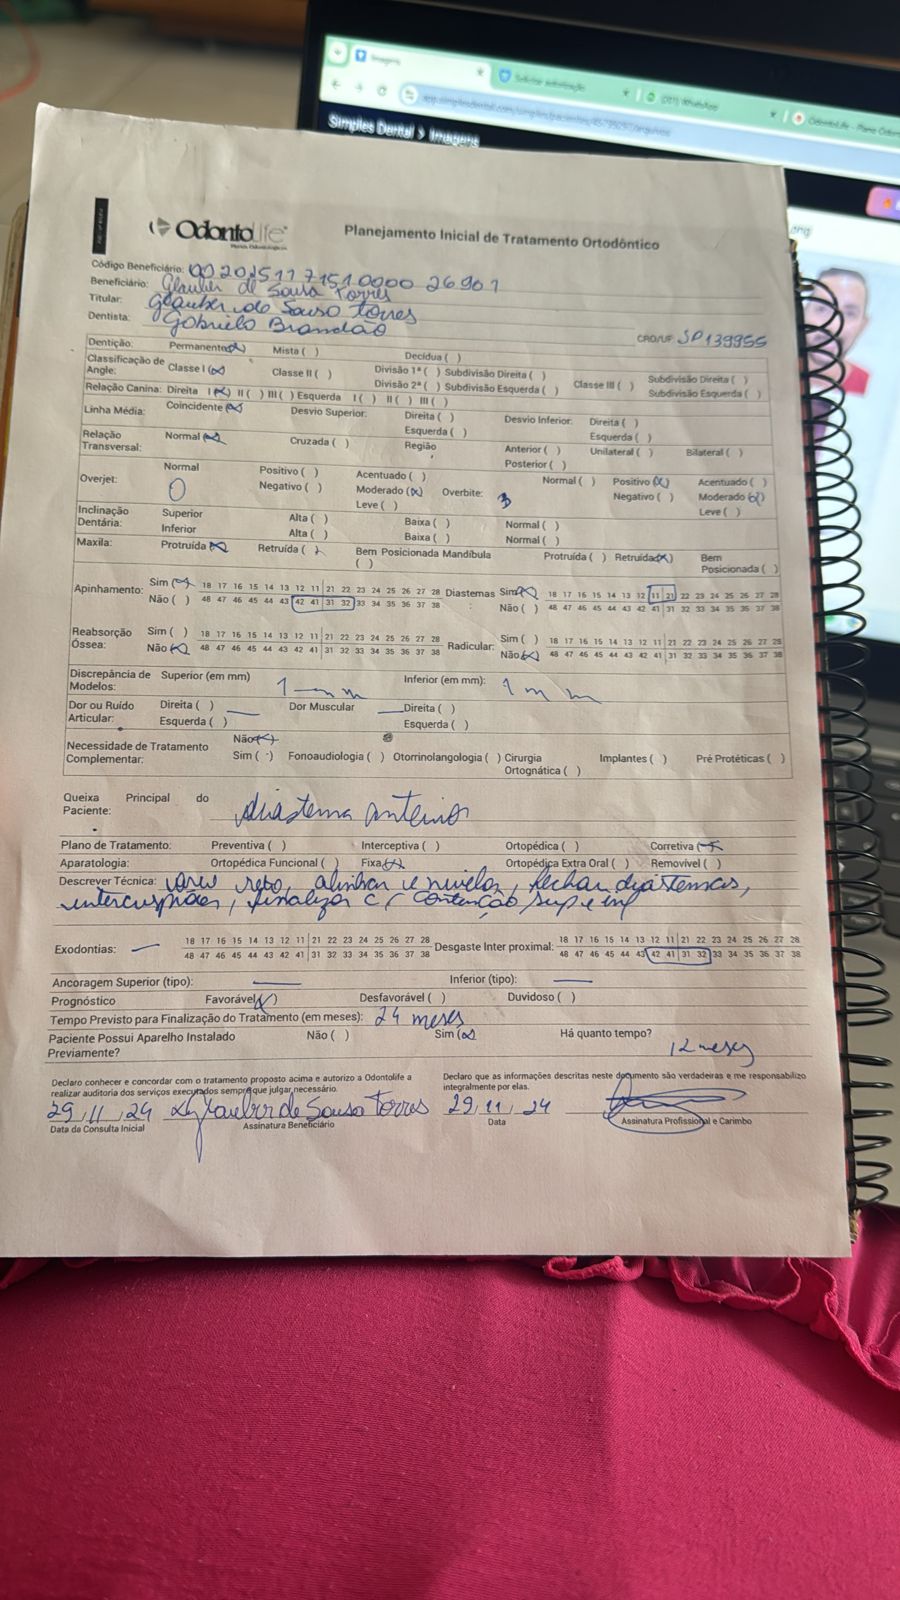 Imagens
Solicitar autorização
(211) WhatsApp
OdontoLife - Plano Odont
Simples Dental > Imagens
.png
OdontoLife
Planos Odontológicos
Planejamento Inicial de Tratamento Ortodôntico
Código Beneficiário: 0020251171510000 26901
Beneficiário: Glauber de Sousa Torres
Titular: Glauber de Sousa Torres
Dentista: Gabriela Brandão CRO/UF SP139955
Dentição: Permanente(x) Mista ( ) Decídua ( )
Classificação de Angle: Classe I (x) Classe II ( ) Divisão 1ª ( ) Subdivisão Direita ( ) Classe III ( ) Subdivisão Direita ( )
Divisão 2ª ( ) Subdivisão Esquerda ( ) Subdivisão Esquerda ( )
Relação Canina: Direita I (x) II ( ) III ( ) Esquerda I ( ) II ( ) III ( )
Linha Média: Coincidente (x) Desvio Superior: Direita ( ) Desvio Inferior: Direita ( )
Esquerda ( ) Esquerda ( )
Relação Transversal: Normal (x) Cruzada ( ) Região Anterior ( ) Unilateral ( ) Bilateral ( )
Posterior ( )
Overjet: Normal Positivo ( ) Acentuado ( ) Overbite: Normal ( ) Positivo (x) Acentuado ( )
0 Negativo ( ) Moderado (x) 3 Negativo ( ) Moderado (x)
Leve ( ) Leve ( )
Inclinação Dentária: Superior Alta ( ) Baixa ( ) Normal ( )
Inferior Alta ( ) Baixa ( ) Normal ( )
Maxila: Protruída (x) Retruída ( ) Bem Posicionada ( ) Mandíbula Protruída ( ) Retruída(x) Bem Posicionada ( )
Apinhamento: Sim (x) 18 17 16 15 14 13 12 11 21 22 23 24 25 26 27 28 Diastemas Sim (x) 18 17 16 15 14 13 12 11 21 22 23 24 25 26 27 28
Não ( ) 48 47 46 45 44 43 42 41 31 32 33 34 35 36 37 38 Não ( ) 48 47 46 45 44 43 42 41 31 32 33 34 35 36 37 38
Reabsorção Óssea: Sim ( ) 18 17 16 15 14 13 12 11 21 22 23 24 25 26 27 28 Radicular: Sim ( ) 18 17 16 15 14 13 12 11 21 22 23 24 25 26 27 28
Não (x) 48 47 46 45 44 43 42 41 31 32 33 34 35 36 37 38 Não (x) 48 47 46 45 44 43 42 41 31 32 33 34 35 36 37 38
Discrepância de Modelos: Superior (em mm) 1 mm Inferior (em mm): 1 mm
Dor ou Ruído Articular: Direita ( ) Dor Muscular Direita ( )
Esquerda ( ) Esquerda ( )
Necessidade de Tratamento Complementar: Não(x)
Sim ( ) Fonoaudiologia ( ) Otorrinolangologia ( ) Cirurgia Ortognática ( ) Implantes ( ) Pré Protéticas ( )
Queixa Principal do Paciente: diastema anterior
Plano de Tratamento: Preventiva ( ) Interceptiva ( ) Ortopédica ( ) Corretiva (x)
Aparatologia: Ortopédica Funcional ( ) Fixa(x) Ortopédica Extra Oral ( ) Removível ( )
Descrever Técnica: arco reto, alinhar e nivelar, fechar diastemas,
intercuspidação, finalizar c/ contenção sup e inf
Exodontias: 18 17 16 15 14 13 12 11 21 22 23 24 25 26 27 28 Desgaste Inter proximal: 18 17 16 15 14 13 12 11 21 22 23 24 25 26 27 28
48 47 46 45 44 43 42 41 31 32 33 34 35 36 37 38 48 47 46 45 44 43 42 41 31 32 33 34 35 36 37 38
Ancoragem Superior (tipo): Inferior (tipo):
Prognóstico Favorável(x) Desfavorável ( ) Duvidoso ( )
Tempo Previsto para Finalização do Tratamento (em meses): 24 meses
Paciente Possui Aparelho Instalado Previamente? Não ( ) Sim (x) Há quanto tempo? 12 meses
Declaro conhecer e concordar com o tratamento proposto acima e autorizo a Odontolife a
realizar auditoria dos serviços executados sempre que julgar necessário.
Declaro que as informações descritas neste documento são verdadeiras e me responsabilizo
integralmente por elas.
29, 11, 24 Glauber de Sousa Torres 29, 11, 24
Data da Consulta Inicial Assinatura Beneficiário Data Assinatura Profissional e Carimbo